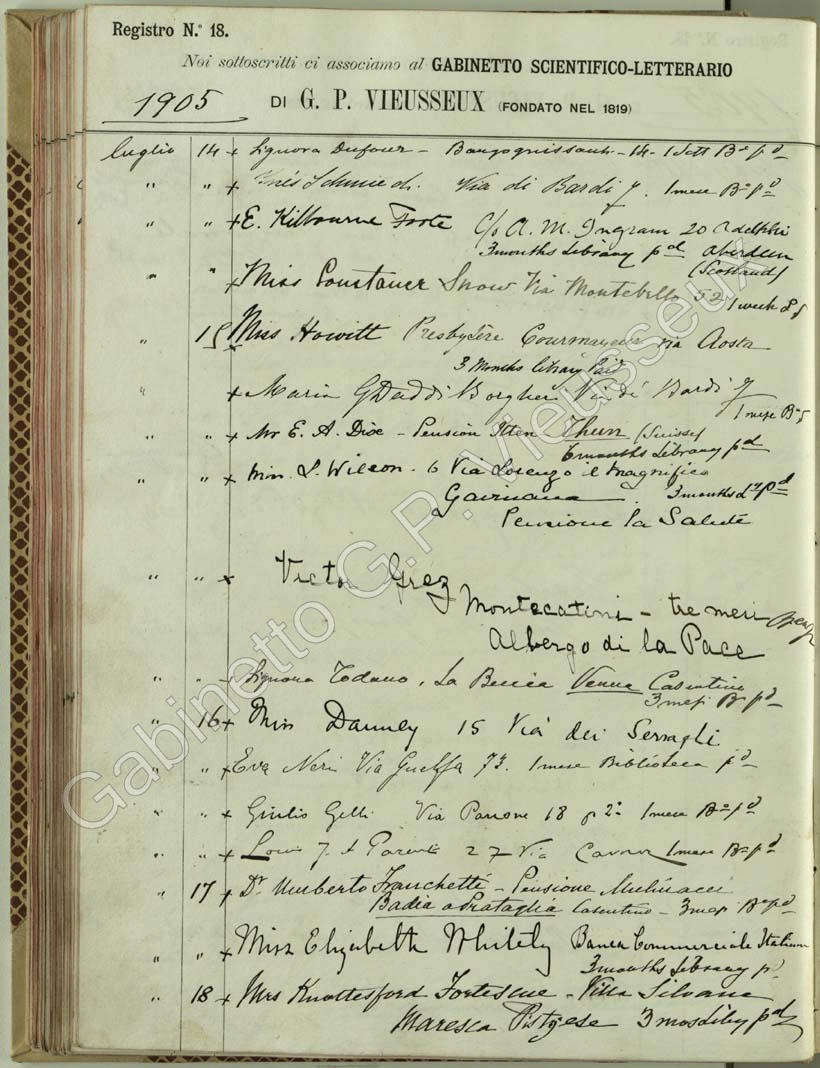 Registro N.º 18.
Noi sottoscritti ci associamo al GABINETTO SCIENTIFICO-LETTERARIO
1905 DI G. P. VIEUSSEUX (FONDATO NEL 1819)
luglio 14 + Signora Dufour - 14 - 1 Sett Bª pd
" " + Inés Schmied. Via di Bardi 7. 1 mese Bª pd
" " + E. Kilbourne Forte c/o A. M. Ingram 20 Adelphi
3 months Library pd Aberdeen
(Scotland)
" " + Miss Constance Snow Via Montebello 52 1 week
" 15 Miss Howitt Presbytère Courmayeur via Aosta
3 Months library Paid
" + Maria Borghen Via di Bardi 7
1 mese Bª
" " + Mr E. A. Dixe - Pension Itten Thun (Suisse)
6 months Library pd
" " + Miss L. Wilson. 6 Via Lorenzo il Magnifico
3 months Ly pd
Pensione la Salute
" " x Victor Grez
Montecatini - tre mesi
Albergo di la Pace
" " - Signora Todano. La Casentino
3 mesi Bª pd
" 16 + Miss 15 Via dei Serragli
" " + Eva Neri Via Guelfa 73. 1 mese Biblioteca pd
" " + Giulio Gelli Via Parione 18 p 2º 1 mese Bª pd
" " + Louis 27 Via Cavour 1 mese Bª pd
" 17 + Dr. Umberto Franchetti - Pensione Mulinacci
Badia a Prataglia Casentino - 3 mesi Bª pd
" " + Miss Elizabeth Whitely Banca Commerciale Italiana
3 months Library pd
" 18 + Mrs Knottesford Fortescue - Villa Silvana
Maresca Pistojese 3 mos Liby pd
Gabinetto G. P. Vieusseux